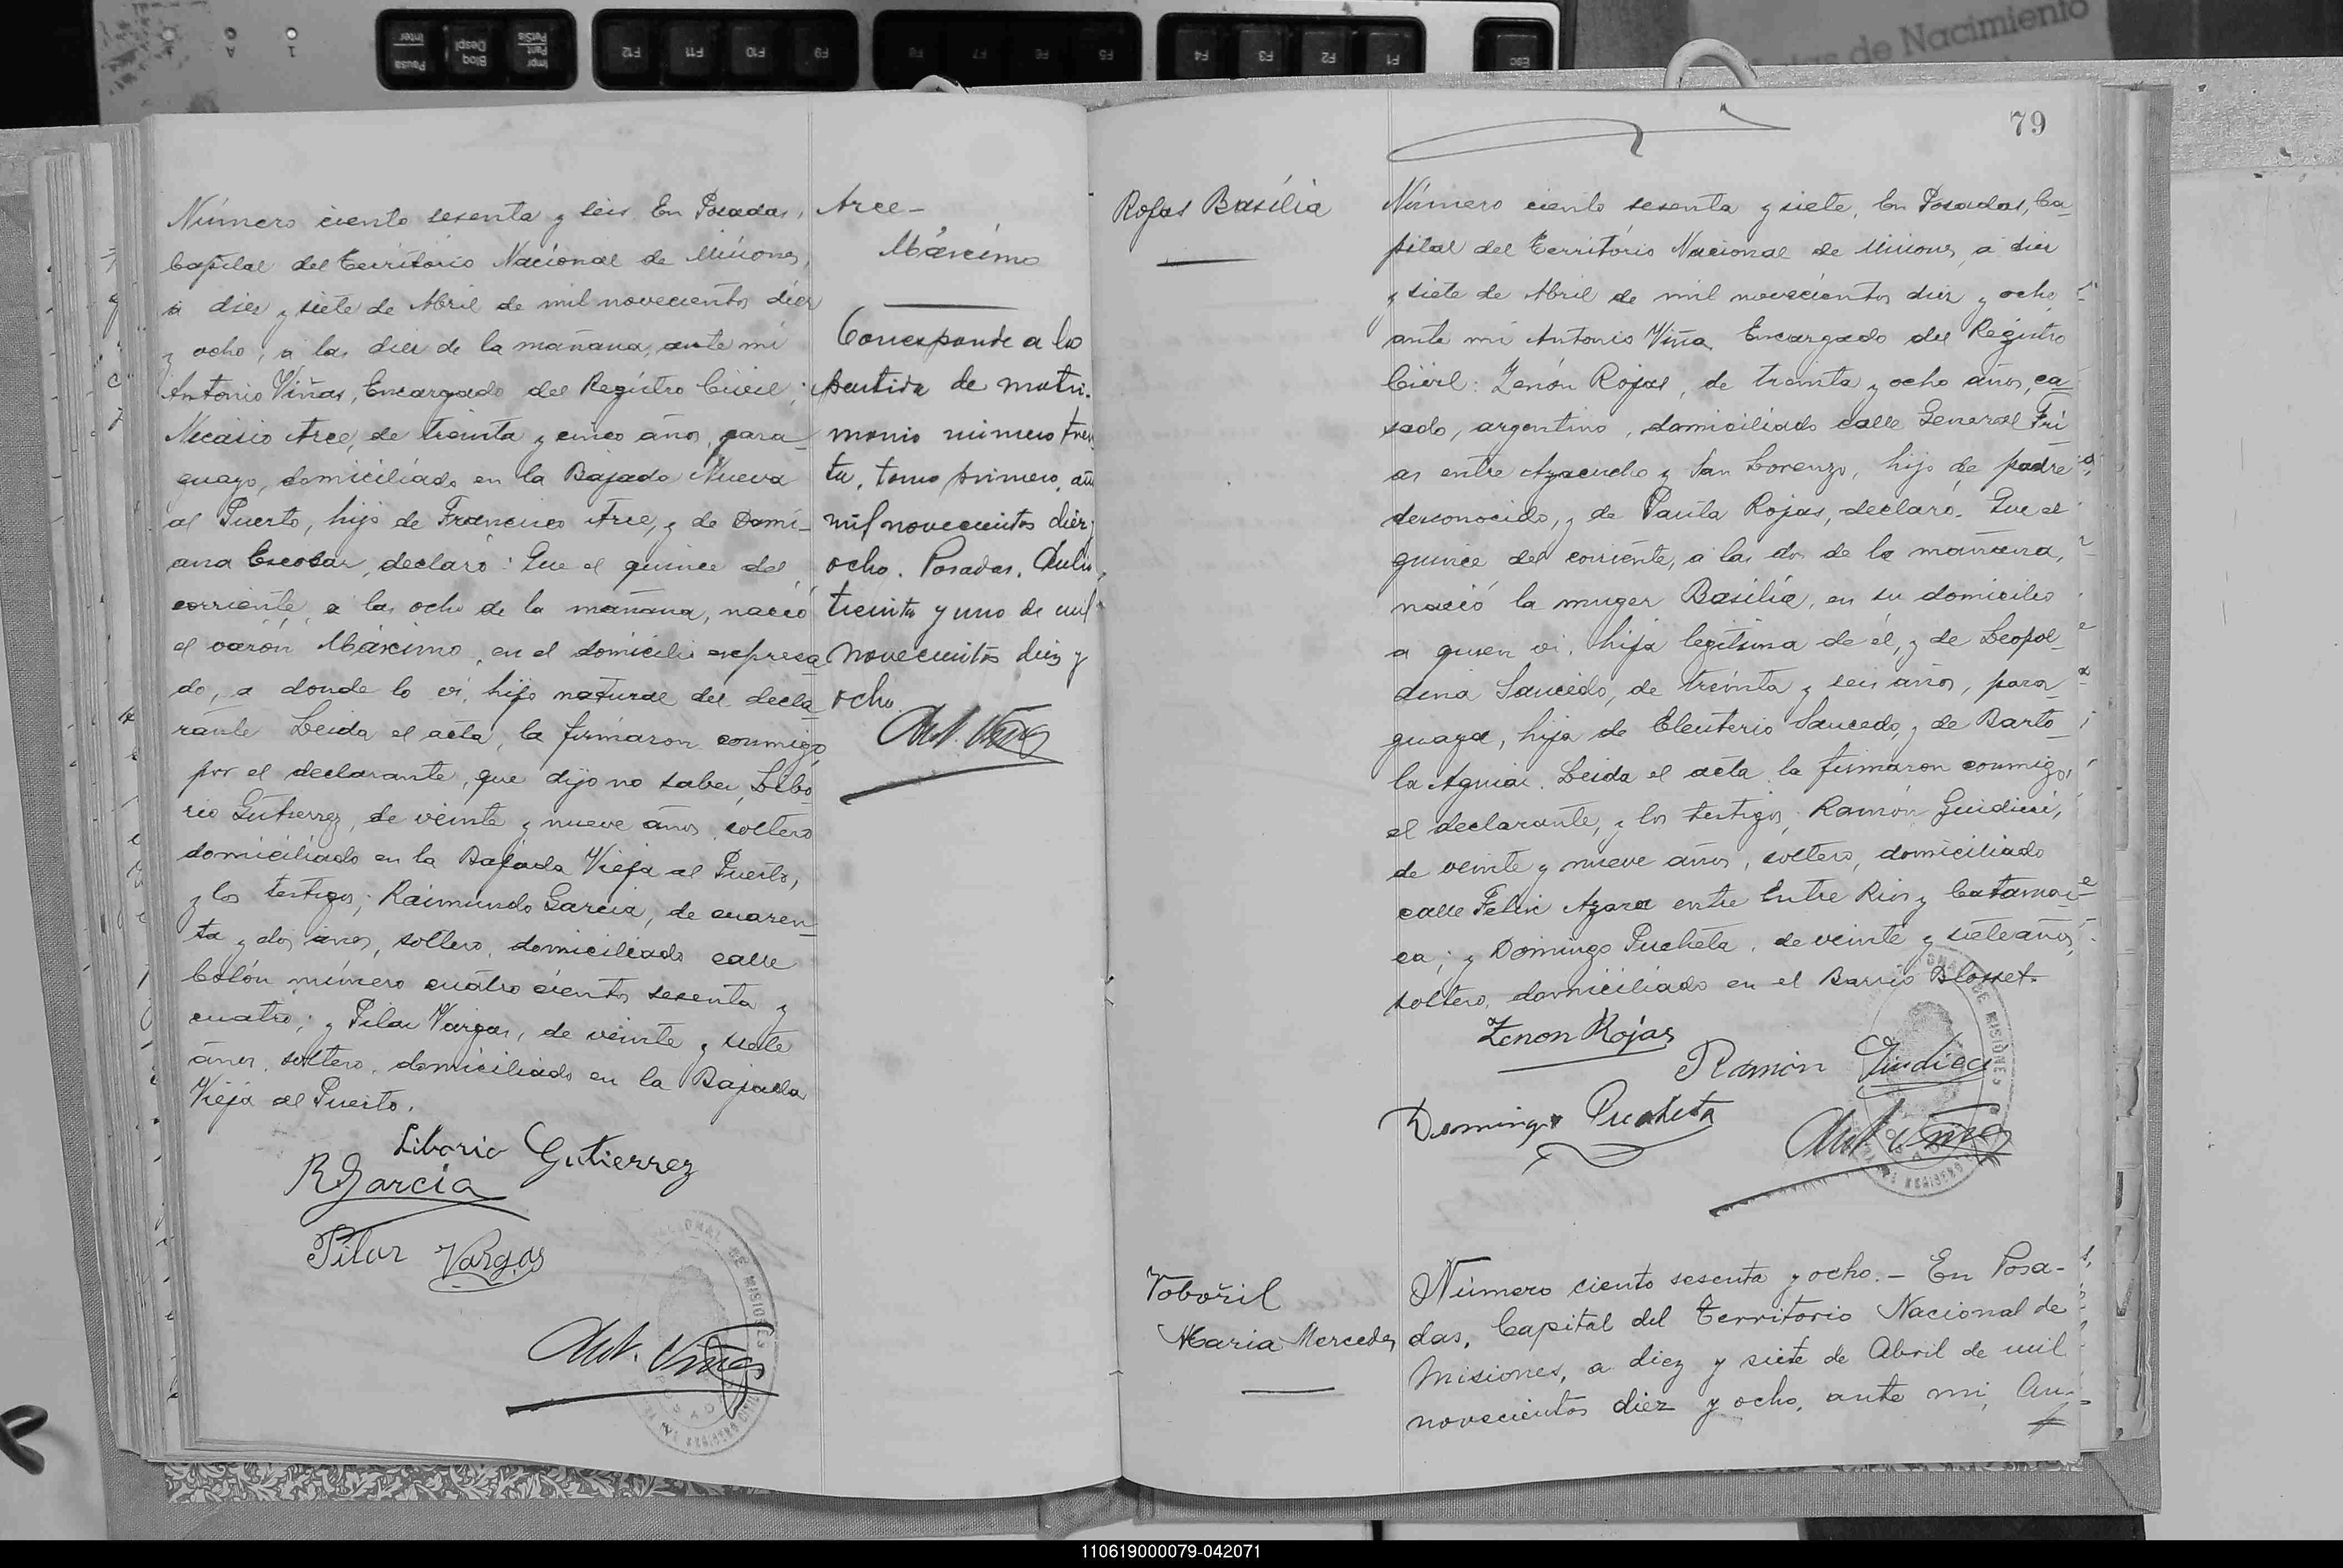 79
Número ciento sesenta y seis. En Posadas,
Capital del Território Nacional de Misiones,
a diez y siete de Abril de mil novecientos diez
y ocho, a las diez de la mañana, ante mi
Antonio Viñas, Encargado del Registro Civil;
Nicasio Arce, de treinta y cinco años, para-
guayo, domiciliado en la Bajada Nueva
al Puerto, hijo de Francisco Arce, y de Dami-
ana Escobar, declaró: Que el quince del
corriente, a las ocho de la mañana, nació
el varón Máximo, en el domicilio expresa-
do, a donde lo vi, hijo natural del decla-
rante. Leida el acta, la firmaron conmigo
por el declarante, que dijo no saber, Libo-
rio Gutierrez, de veinte y nueve años, soltero
domiciliado en la Bajada Vieja al Puerto,
y los testigos; Raimundo Garcia, de cuaren-
ta y dos años, soltero, domiciliado calle
Colón número cuatro cientos sesenta y
cuatro; y Pilar Vargas, de veinte y siete
años, soltero, domiciliado en la Bajada
Vieja al Puerto.
Liborio Gutierrez
R Garcia
Pilar Vargas
Ant. Viñas
Arce-
Máximo
Corresponde a la
partida de matri-
monio número trein
ta, tomo primero, año
mil novecientos diez y
ocho. Posadas, Julio
treinta y uno de mil
novecientos diez y
ocho.
Ant. Viñas
Rojas Basília
Número ciento sesenta y siete. En Posadas, Ca-
pital del Território Nacional de Misiones, a diez
y siete de Abril de mil novecientos diez y ocho
ante mi Antonio Viñas Encargado del Registro
Civil: Zenón Rojas, de treinta y ocho años, ca-
sado, argentino, domiciliado calle General Frí-
as entre Ayacucho y San Lorenzo, hijo de padre
desconocido, y de Paula Rojas, declaró. Que el
quince del corriente, a las dos de la mañana,
nació la muger Basilia, en su domicilio
a quien vi, hija legitima de él, y de Leopol-
dina Saucedo, de treinta y seis años, para-
guaya, hija de Eleuterio Saucedo, y de Barto-
la Aguiar. Leida el acta la firmaron conmigo,
el declarante, y los testigos; Ramón Guidicci,
de veinte y nueve años, soltero, domiciliado
calle Felix Azara entre Entre Rios y Catamar-
ca; y Domingo Pucheta, de veinte y siete años,
soltero, domiciliado en el Barrio Blosset.
Zenon Rojas
Ramón Guidicci
Domingo Pucheta
Ant. Viñas
Vobořil
Maria Mercedes
Número ciento sesenta y ocho.- En Posa-
das, Capital del Territorio Nacional de
Misiones, a diez y siete de Abril de mil
novecientos diez y ocho, ante mi, An-
110619000079-042071